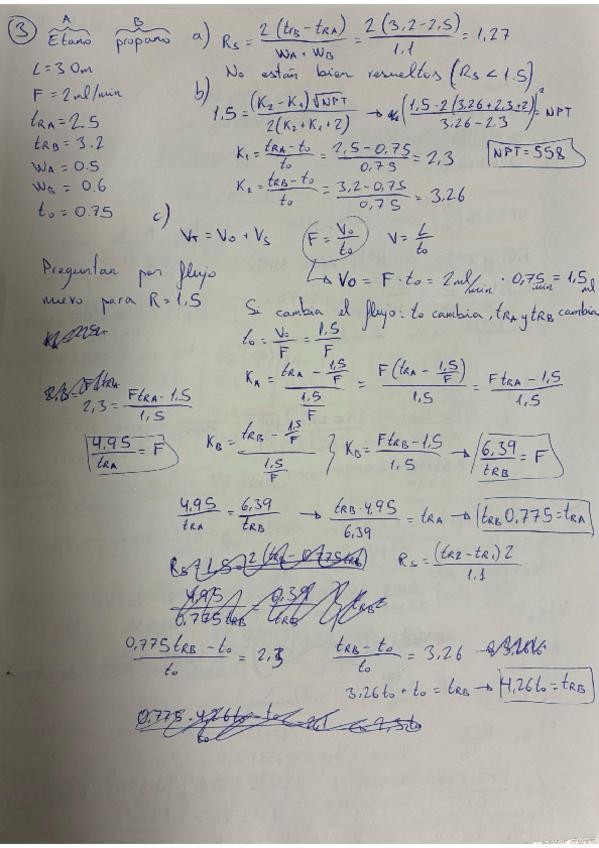 ③ A B
Etano propano
L = 30m
F = 2ml/min
tRA = 2.5
tRB = 3.2
WA = 0.5
WB = 0.6
t0 = 0.75
a) Rs = 2(tRB - tRA) / (WA + WB) = 2(3,2 - 2,5) / 1,1 = 1,27
No están bien resueltos (Rs < 1.5)
b) 1,5 = (K2 - K1)√NPT / 2(K2 + K1 + 2) → (1,5·2(3,26 + 2,3 + 2) / 3.26 - 2.3)² = NPT
K1 = (tRA - t0) / t0 = (2,5 - 0,75) / 0,75 = 2,3
NPT = 558
K2 = (tRB - t0) / t0 = (3,2 - 0,75) / 0,75 = 3,26
c) VT = V0 + VS F = V0 / t0 V = L / t0
↳ V0 = F · t0 = 2ml/min · 0,75 min = 1,5 ml
Preguntar por flujo
nuevo para R = 1,5
Si cambia el flujo: t0 cambia, tRA y tRB cambia
t0 = V0 / F = 1,5 / F
KA = (tRA - 1,5/F) / (1,5/F) = F(tRA - 1,5/F) / 1,5 = (FtRA - 1,5) / 1,5
2,3 = (FtRA - 1,5) / 1,5
4,95 / tRA = F
KB = (tRB - 1,5/F) / (1,5/F) } KB = (FtRB - 1.5) / 1.5 → 6,39 / tRB = F
4,95 / tRA = 6,39 / tRB → tRB · 4,95 / 6,39 = tRA → tRB 0,775 = tRA
Rs = (tR2 - tR1) 2 / 1,1
(0,775 tRB - t0) / t0 = 2,3 (tRB - t0) / t0 = 3,26
3,26 t0 + t0 = tRB → 4,26 t0 = tRB